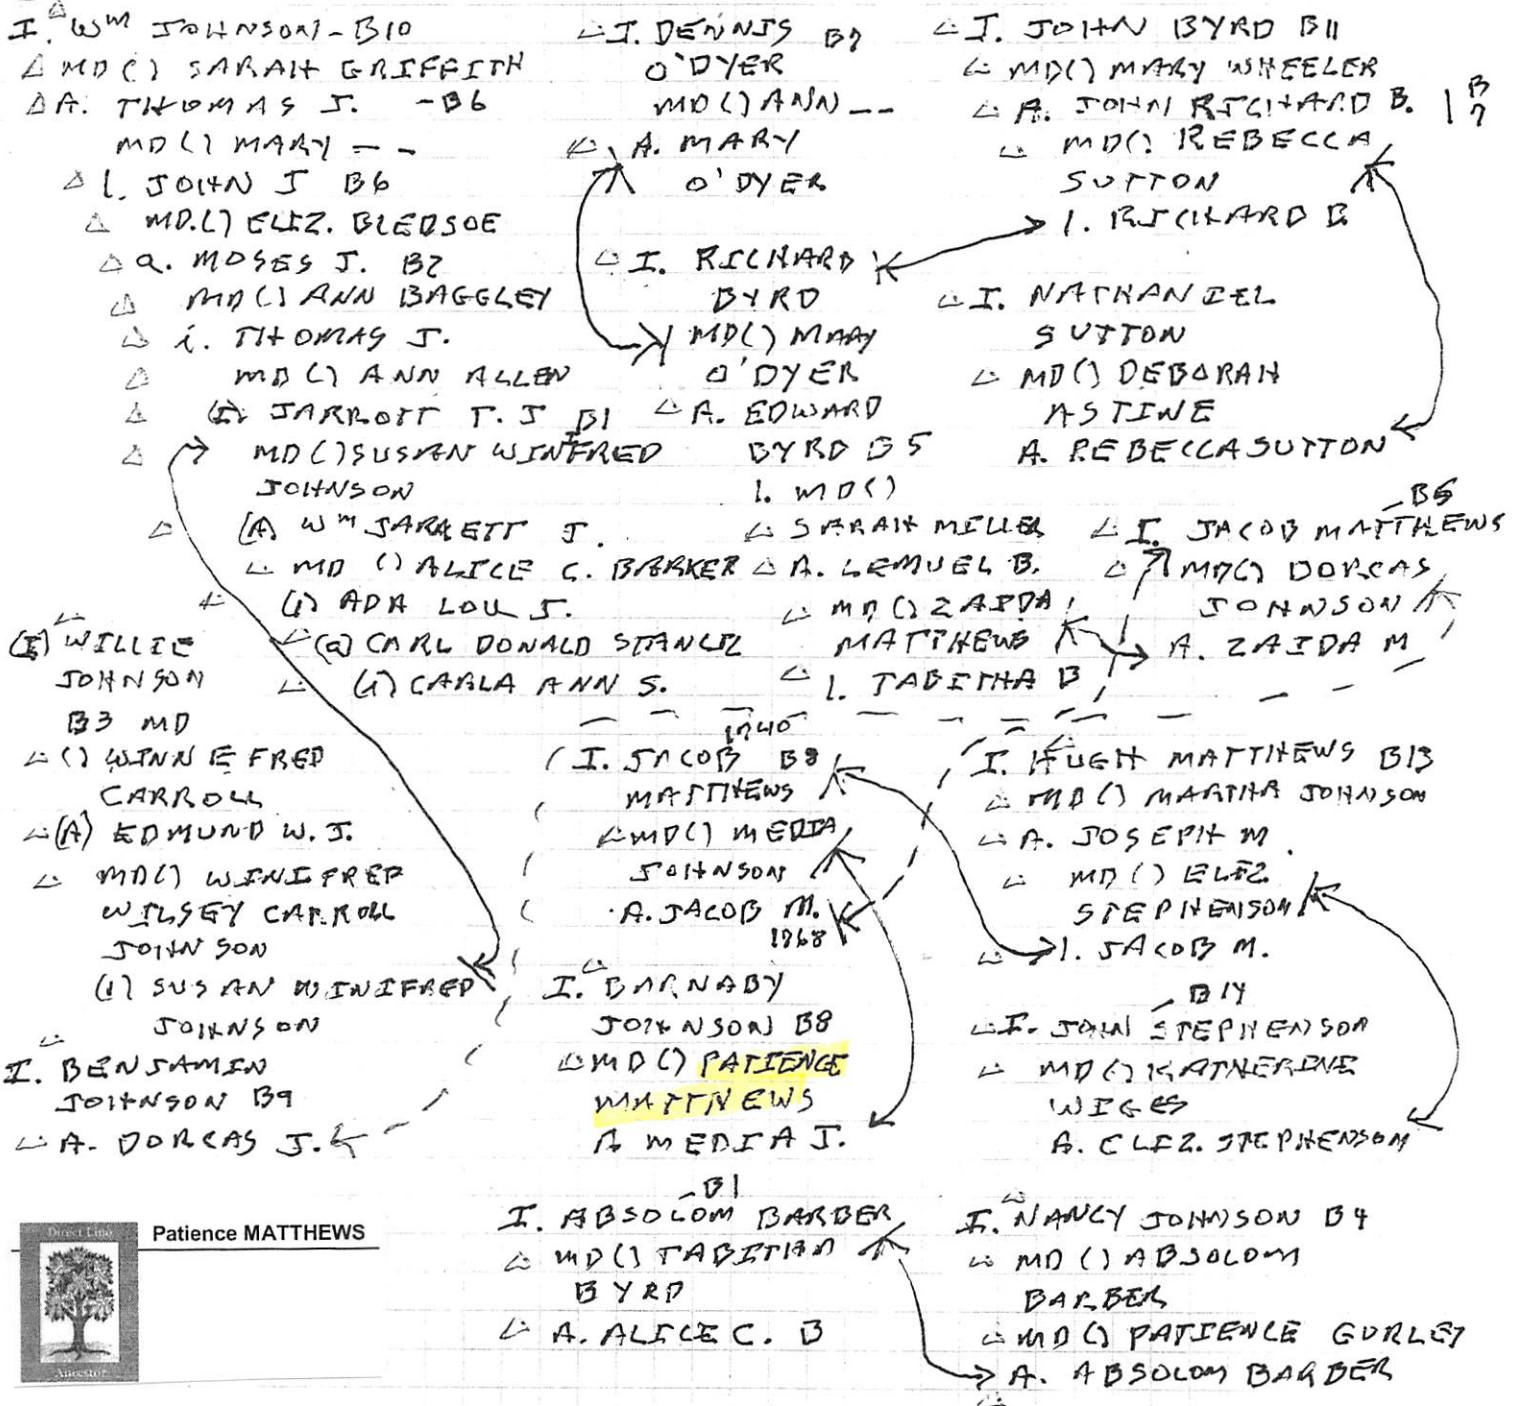 I. Wm JOHNSON - B10
MD () SARAH GRIFFITH
A. THOMAS J. - B6
MD () MARY - -
1. JOHN J B6
MD. () ELIZ. BLEDSOE
a. MOSES J. B2
MD () ANN BAGGLEY
i. THOMAS J.
MD () ANN ALLEN
(I) JARROTT T. J B1
MD () SUSAN WINIFRED
JOHNSON
(A) Wm JARRETT J.
MD () ALICE C. BARKER
(1) ADA LOU J.
(a) CARL DONALD STANCIL
(i) CARLA ANN S.
(I) WILLIE
JOHNSON
B3 MD
() WINNEFRED
CARROLL
(A) EDMUND W. J.
MD () WINIFRED
WILSEY CARROLL
JOHNSON
(1) SUSAN WINIFRED
JOHNSON
I. BENJAMIN
JOHNSON B9
A. DORCAS J.
I. DENNIS B7
O'DYER
MD () ANN - -
A. MARY
O'DYER
I. RICHARD
BYRD
MD () MARY
O'DYER
A. EDWARD
BYRD B5
1. MD ()
SARAH MILLER
A. LEMUEL B.
MD () ZAIDA
MATTHEWS
1. TABITHA B
1740
I. JACOB B8
MATTHEWS
MD () MEDIA
JOHNSON
A. JACOB M.
1768
I. BARNABY
JOHNSON B8
MD () PATIENCE
MATTHEWS
A MEDIA J.
B1
I. ABSOLOM BARBER
MD () TABITHA
BYRD
A. ALICE C. B
I. JOHN BYRD B11
MD () MARY WHEELER
A. JOHN RICHARD B. 1 B
7
MD () REBECCA
SUTTON
1. RICHARD B.
I. NATHANIEL
SUTTON
MD () DEBORAH
ASTINE
A. REBECCA SUTTON
B5
I. JACOB MATTHEWS
MD () DORCAS
JOHNSON
A. ZAIDA M
I. HUGH MATTHEWS B13
MD () MARTHA JOHNSON
A. JOSEPH M.
MD () ELIZ
STEPHENSON
1. JACOB M.
B14
I. JOHN STEPHENSON
MD () KATHERINE
WIGES
A. ELIZ. STEPHENSON
I. NANCY JOHNSON B4
MD () ABSOLOM
BARBER
MD () PATIENCE GURLEY
A. ABSOLOM BARBER
Direct Line
Ancestor
Patience MATTHEWS